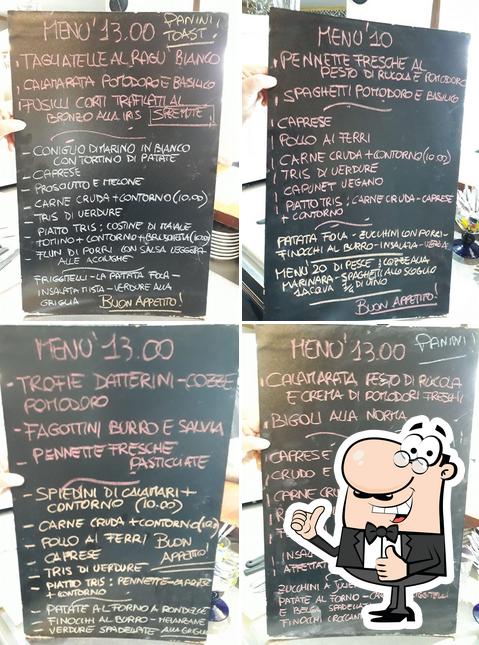 MENÙ 13.00
PANINI
TOAST!
TAGLIATELLE AL RAGÙ BIANCO
CALAMARATA POMODORO E BASILICO
FUSILLI CORTI TRAFILATI AL
BRONZO ALLA IRIS
SPREMUTE!
- CONIGLIO DI MARINO IN BIANCO
CON TORTINO DI PATATE
- CAPRESE
- PROSCIUTTO E MELONE
- CARNE CRUDA + CONTORNO (10.00)
- TRIS DI VERDURE
- PIATTO TRIS: COSTINE DI MAIALE
TOTTINO + CONTORNO + BRUSCHETTA (10.00)
- FLAN DI PORRI CON SALSA LEGGERA
ALLE ACCIUGHE
FRIGGITELLI - LA PATATA FOLA -
INSALATA MISTA - VERDURE ALLA
GRIGLIA
BUON APPETITO!
MENÙ 10
PENNETTE FRESCHE AL
PESTO DI RUCOLA E POMODORO
SPAGHETTI POMODORO E BASILICO
CAPRESE
POLLO AI FERRI
CARNE CRUDA + CONTORNO (10.00)
TRIS DI VERDURE
CAPUNET VEGANO
PIATTO TRIS: CARNE CRUDA - CAPRESE
+ CONTORNO
PATATA FOLA - ZUCCHINI CON PORRI -
FINOCCHI AL BURRO - INSALATA - VERZA
MENÙ 20 DI PESCE: COZZE ALLA
MARINARA - SPAGHETTI ALLO SCOGLIO
1 ACQUA ½ DI VINO
BUON APPETITO!
MENÙ 13.00
- TROFIE DATTERINI - COZZE
POMODORO
- FAGOTTINI BURRO E SALVIA
- PENNETTE FRESCHE
PASTICCIATE
- SPIEDINI DI CALAMARI +
CONTORNO (10.00)
- CARNE CRUDA + CONTORNO (10.00)
- POLLO AI FERRI
BUON
APPETITO!
- CAPRESE
- TRIS DI VERDURE
- PIATTO TRIS: PENNETTE - CAPRESE
+ CONTORNO
- PATATE AL FORNO A RONDELLE
FINOCCHI AL BURRO - MELANZANE
VERDURE SPADELLATE - ALLA GRIGLIA
MENÙ 13.00
PANINI!
CALAMARATA PESTO DI RUCOLA
E CREMA DI POMODORI FRESCHI
BIGOLI ALLA NORMA
CAPRESE
CRUDO E
CARNE CRU
INSALA
AFFETTAT
ZUCCHINI A
PATATE AL FORNO -
E BELGA SPADELLA
FINOCCHI CROCCANT